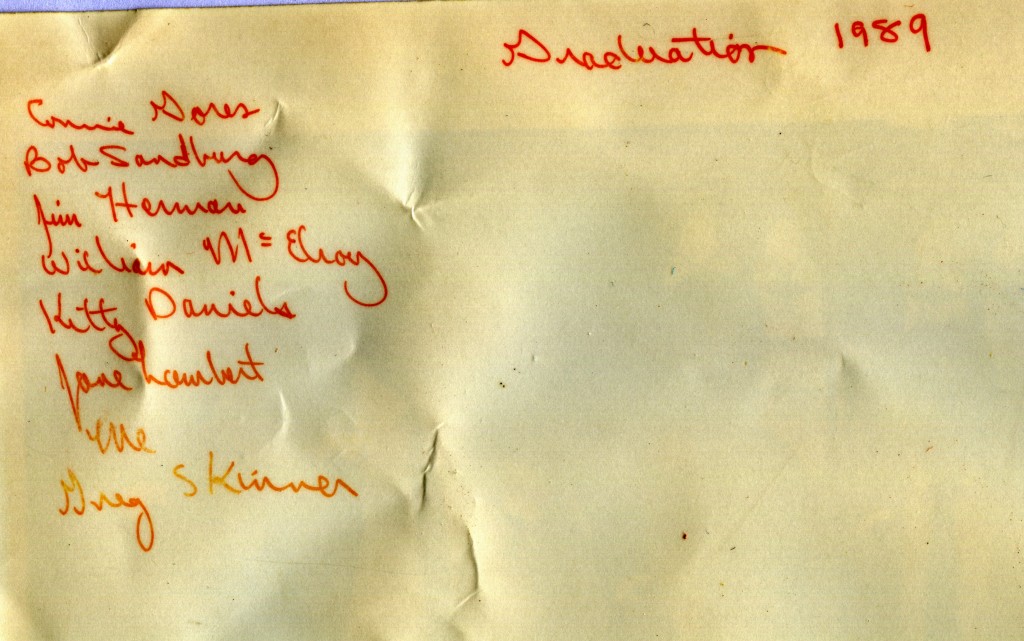 Graduation 1989
Connie Gores
Bob Sandburg
Jim Herman
William Mc Elroy
Kitty Daniels
Jane Lambert
Me
Greg Skinner